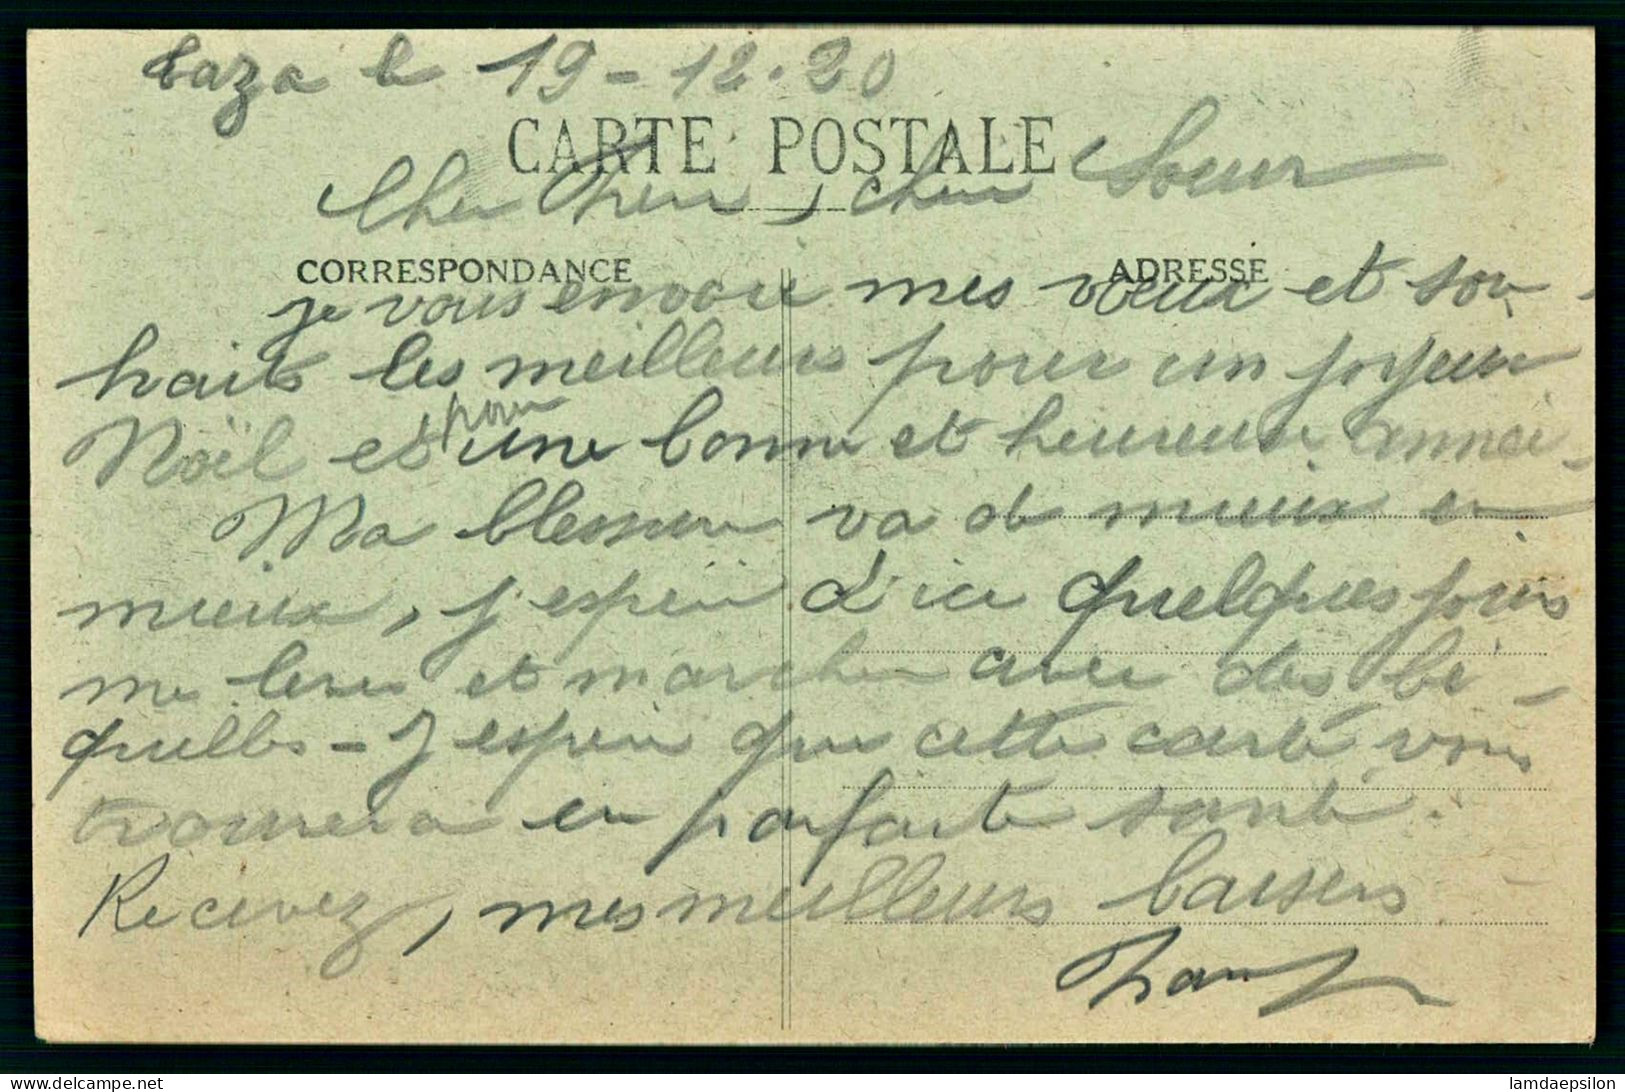 Taza le 19-12-20
CARTE POSTALE
Cher Frère, chère Soeur
CORRESPONDANCE ADRESSE
je vous envoie mes voeux et sou-
haits les meilleurs pour un joyeux
Noël et pour une bonne et heureuse année-
Ma blessure va de mieux en
mieux, j'espère d'ici quelques jours
me lever et marcher avec des bé-
quilles - J'espère que cette carte vous
trouvera en parfaite santé.
Recevez, mes meilleurs baisers
lamdaepsilon